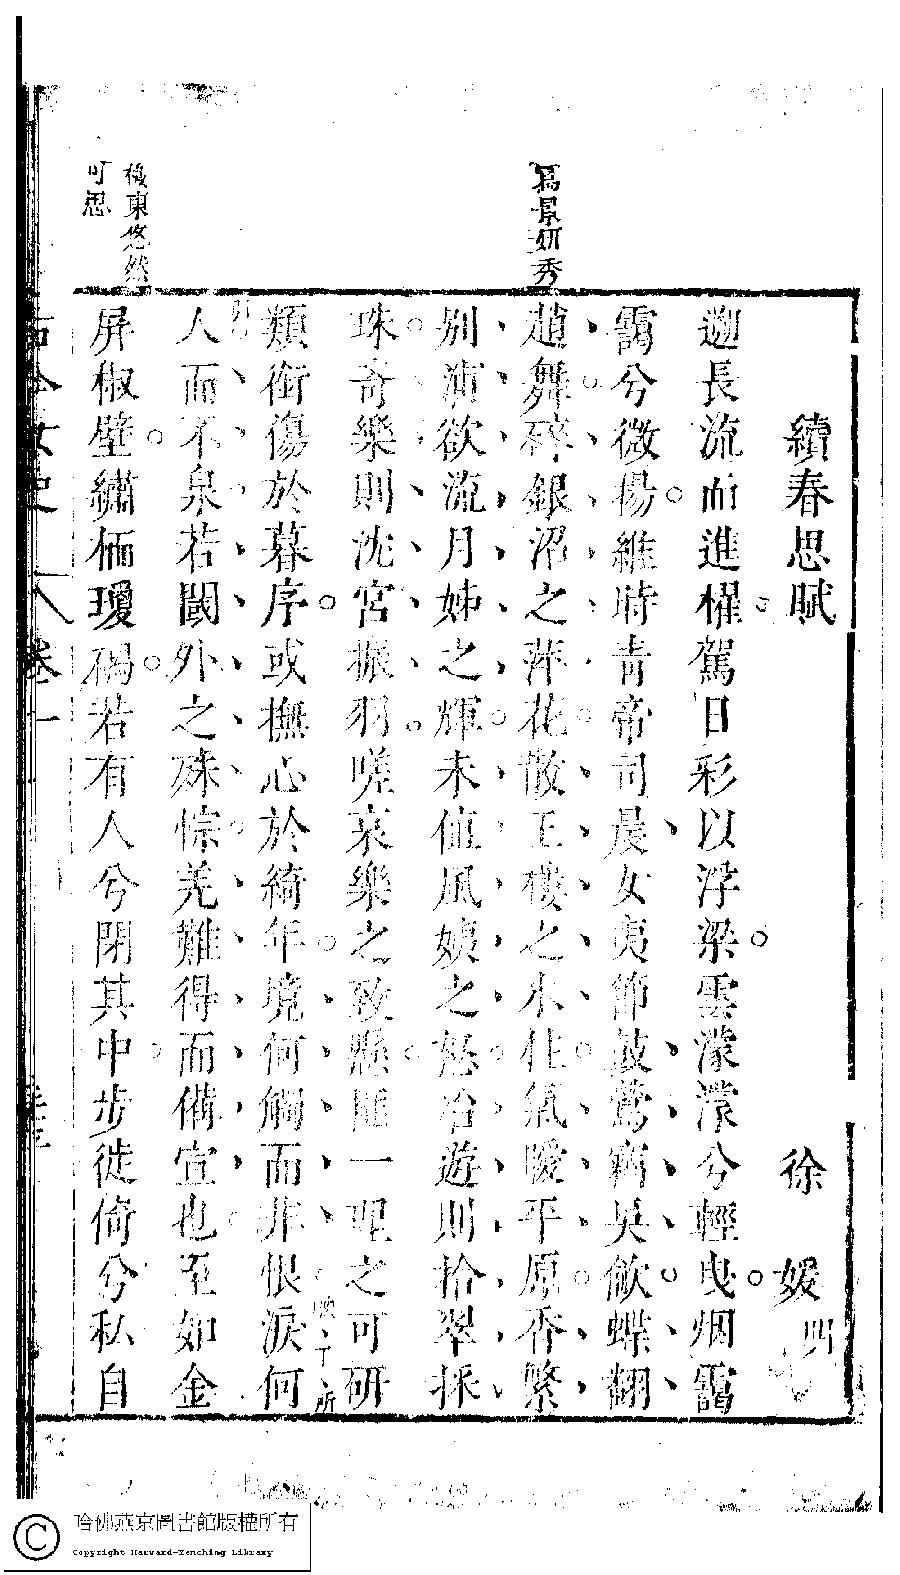 續春思賦
徐媛明
遡長流而進櫂駕日彩以浮梁雲濛濛兮輕曳烟靄
靄兮微揚維時青帝司晨女夷節鼓鶯窩吳歈蝶翻
趙舞碎銀沼之萍花散玉樓之木佳氣曖平原香繁
別浦欲流月姊之輝未値風姨之怒冶遊則拾翠採
珠奇樂則沈宮振羽嗟哀樂之致懸匪一理之可研
類銜傷於暮序或撫心於綺年境何觸而非恨淚何
人而不泉若閫外之殊悰羌難得而備宣也至如金
屏椒壁繡栭瓊碣若有人兮閉其中步徙倚兮私自
寫景妍秀
後東悠然
可思
古今女史
卷一
哈佛燕京圖書館版權所有
Copyright Harvard-Yenching Library